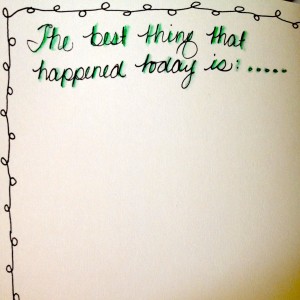 The best thing that
happened today is:.....